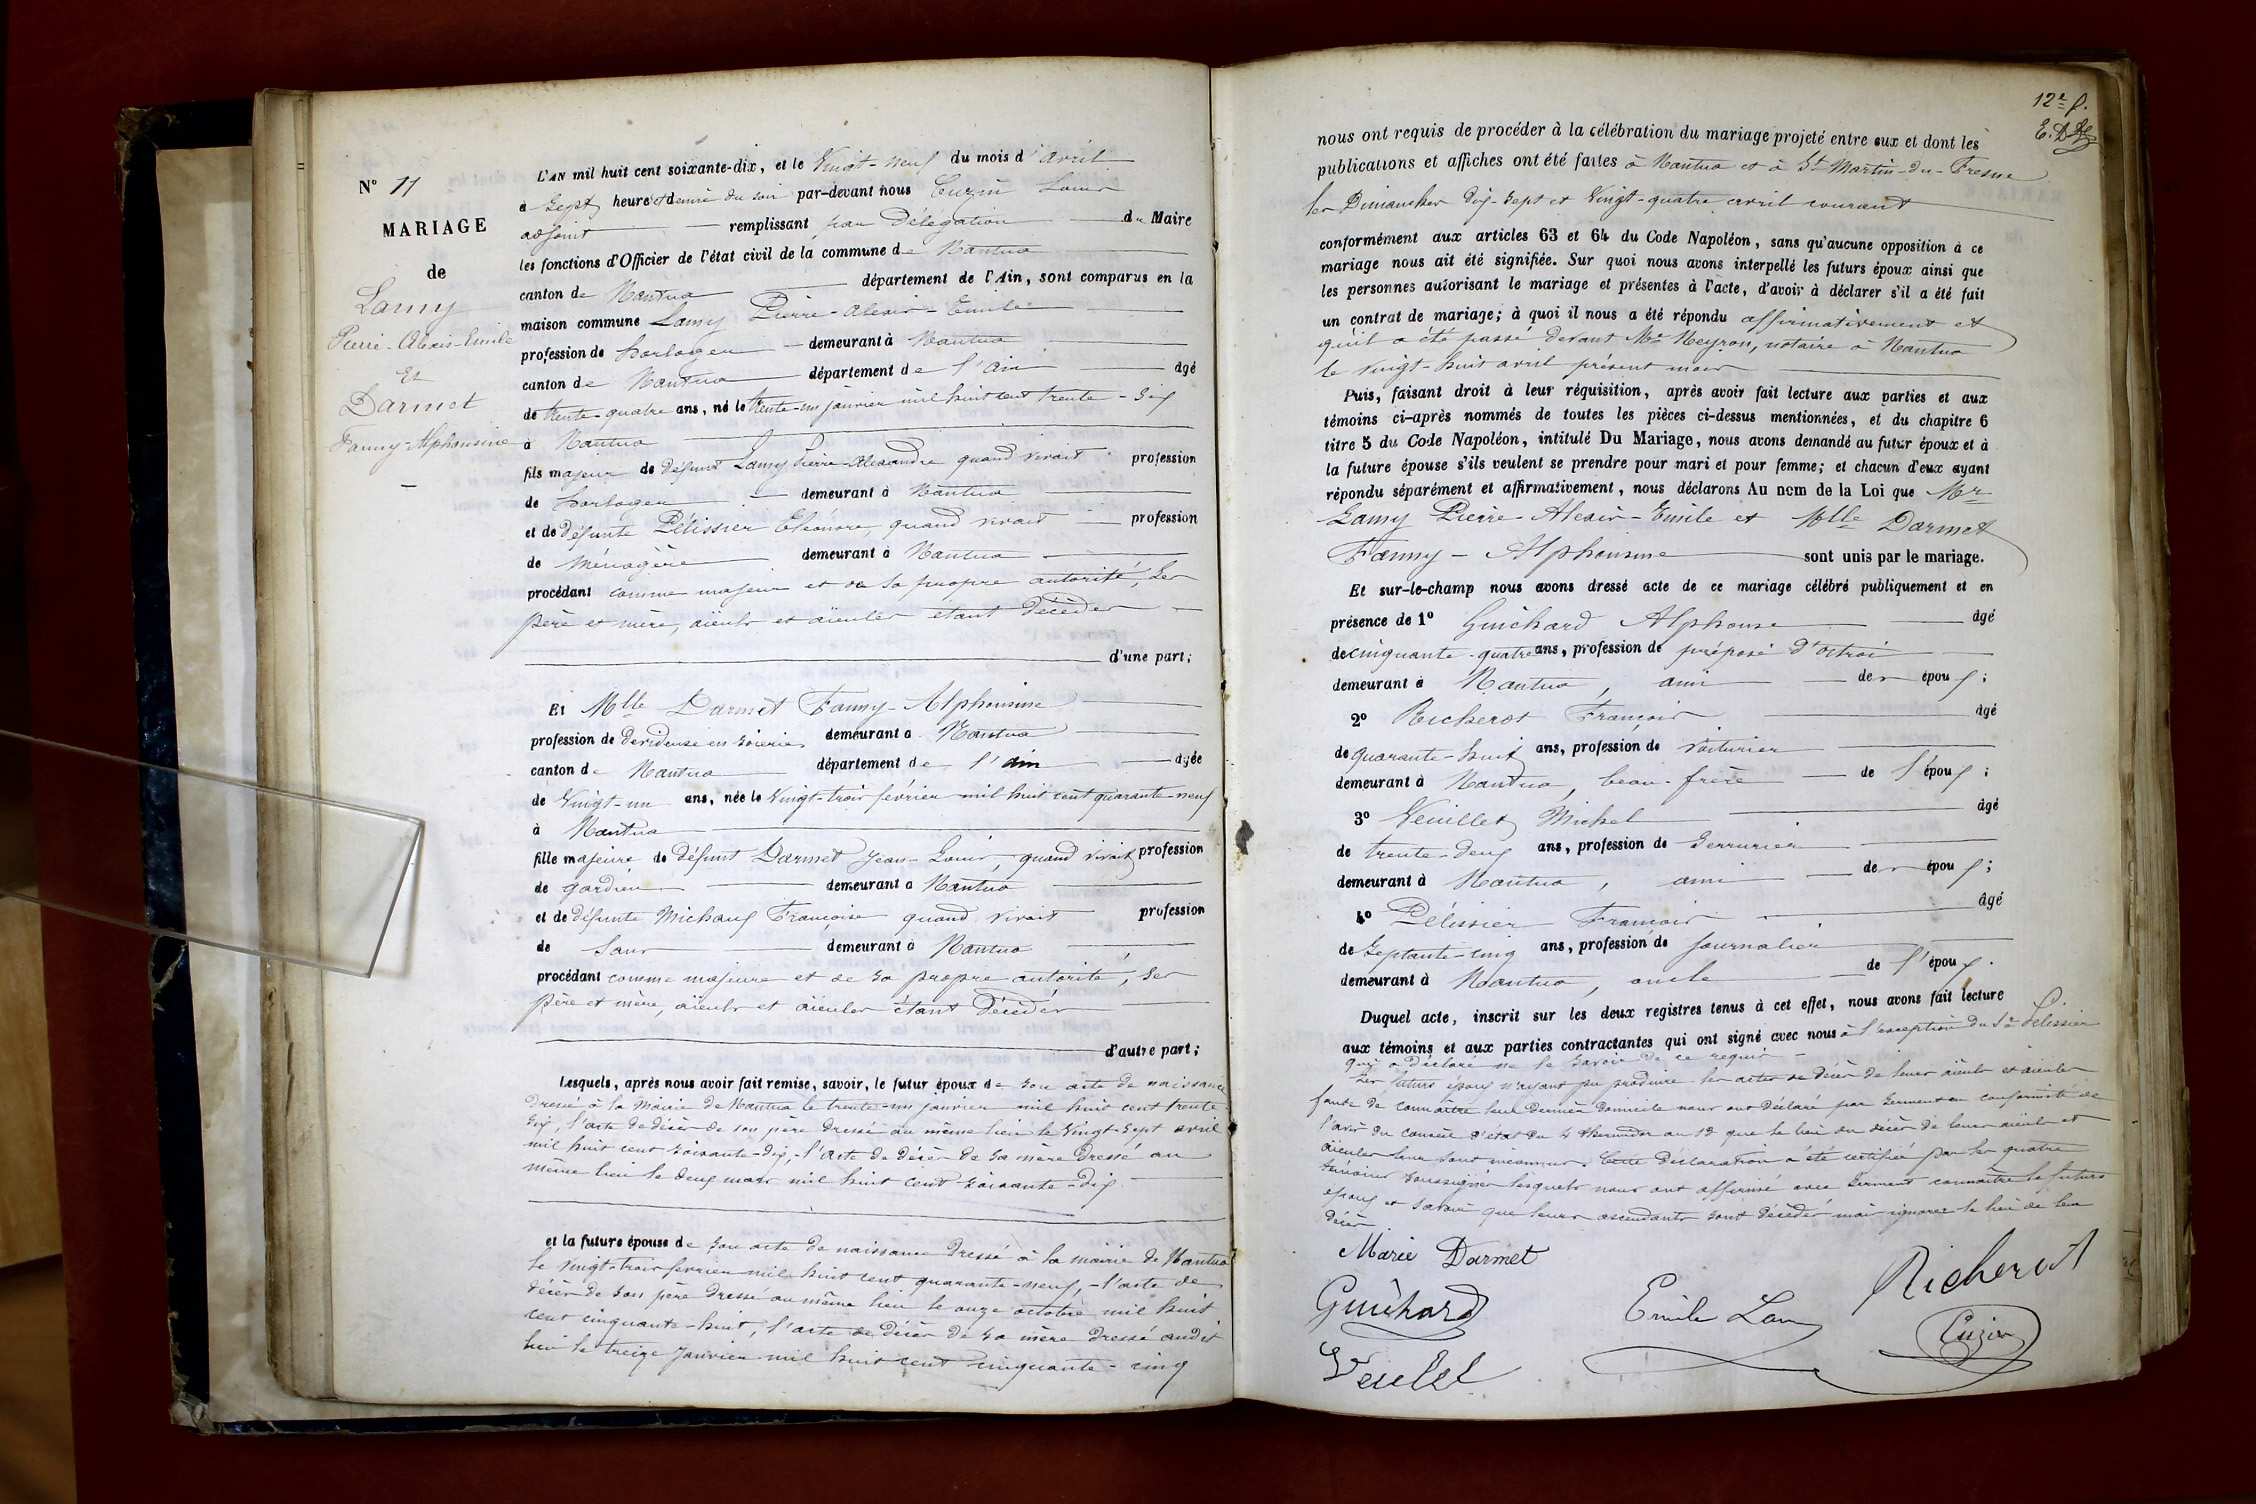 N° 11
MARIAGE
de
Lamy
Pierre-Alexis-Emile
Et
Darmet
Fanny-Alphonsine
L'AN mil huit cent soixante-dix, et le Vingt-neuf du mois d'avril
à Sept heures et demie du soir par-devant nous Cuzin Louis
adjoint remplissant par Délégation du Maire
les fonctions d'Officier de l'état civil de la commune de Nantua
canton de Nantua département de l'Ain, sont comparus en la
maison commune Lamy Pierre-Alexis-Emile
profession de horloger demeurant à Nantua
canton de Nantua département de l'Ain âgé
de trente-quatre ans, né le trente-un janvier mil huit cent trente-six
à Nantua
fils majeur de défunt Lamy Pierre-Alexandre quand vivait profession
de horloger demeurant à Nantua
et de défunte Pélissier Eléonore, quand vivait profession
de ménagère demeurant à Nantua
procédant comme majeur et de sa propre autorité, ses
père et mère, aïeuls et aïeules étant décédés
d'une part;
Et Mlle Darmet Fanny-Alphonsine
profession de devideuse en soieries demeurant à Nantua
canton de Nantua département de l'Ain âgée
de Vingt-un ans, née le Vingt-trois février mil huit cent quarante-neuf
à Nantua
fille majeure de défunt Darmet Jean-Louis, quand vivait profession
de gardien demeurant à Nantua
et de défunte Michaux Françoise quand vivait profession
de sans demeurant à Nantua
procédant comme majeure et de sa propre autorité, ses
père et mère, aïeuls et aïeules étant Décédés
d'autre part;
Lesquels, après nous avoir fait remise, savoir, le futur époux de son acte de naissance
dressé à la Mairie de Nantua le trente-un janvier mil huit cent trente
six, l'acte de décès de son père dressé au même lieu le Vingt-sept avril
mil huit cent soixante-dix, l'acte de décès de sa mère dressé au
même lieu le deux mars mil huit cent soixante-dix
et la future épouse de son acte de naissance dressé à la mairie de Nantua
le vingt-trois février mil huit cent quarante-neuf, l'acte de
décès de son père dressé au même lieu le onze octobre mil huit
cent cinquante-huit, l'acte de décès de sa mère dressé audit
lieu le treize Janvier mil huit cent cinquante-cinq
12e f.
nous ont requis de procéder à la célébration du mariage projeté entre eux et dont les
publications et affiches ont été faites à Nantua et à St Martin-du-Fresne
les Dimanches dix-sept et Vingt-quatre avril courant
conformément aux articles 63 et 64 du Code Napoléon, sans qu'aucune opposition à ce
mariage nous ait été signifiée. Sur quoi nous avons interpellé les futurs époux ainsi que
les personnes autorisant le mariage et présentes à l'acte, d'avoir à déclarer s'il a été fait
un contrat de mariage; à quoi il nous a été répondu affirmativement et
qu'il a été passé devant Me Neyron, notaire à Nantua
le vingt-huit avril présent mois
Puis, faisant droit à leur réquisition, après avoir fait lecture aux parties et aux
témoins ci-après nommés de toutes les pièces ci-dessus mentionnées, et du chapitre 6
titre 5 du Code Napoléon, intitulé Du Mariage, nous avons demandé au futur époux et à
la future épouse s'ils veulent se prendre pour mari et pour femme; et chacun d'eux ayant
répondu séparément et affirmativement, nous déclarons Au nom de la Loi que Mr
Lamy Pierre-Alexis-Emile et Mlle Darmet
Fanny-Alphonsine sont unis par le mariage.
Et sur-le-champ nous avons dressé acte de ce mariage célébré publiquement et en
présence de 1° Guichard Alphonse âgé
de cinquante-quatre ans, profession de préposé d'octroi
demeurant à Nantua, ami des époux;
2° Richerot François âgé
de quarante-huit ans, profession de voiturier
demeurant à Nantua, beau-frère de l'époux;
3° Veuillet Michel âgé
de trente-deux ans, profession de Serrurier
demeurant à Nantua, ami des époux;
4° Pélissier François âgé
de Septante-cinq ans, profession de journalier
demeurant à Nantua, oncle de l'époux.
Duquel acte, inscrit sur les deux registres tenus à cet effet, nous avons fait lecture
aux témoins et aux parties contractantes qui ont signé avec nous à l'exception du Sr Pélissier
qui a déclaré ne le savoir de ce requis
Les futurs époux n'ayant pu produire les actes de décès de leurs aïeuls et aïeules
faute de connaître leur dernier domicile nous ont déclaré par serment en conformité de
l'avis du conseil d'état du 4 thermidor an 13 que le lieu du décès de leurs aïeuls et
aïeules leur sont inconnus. Cette Déclaration a été certifiée par les quatre
témoins soussignés lesquels nous ont affirmé avec serment connaître les futurs
époux et savoir que leurs ascendants sont décédés mais ignorer le lieu de leur
décès
Marie Darmet
Guichard
Emile Lamy
Richerot
Cuzin
Veuillet